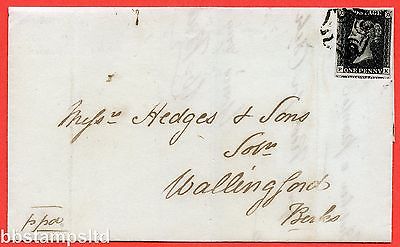 POSTAGE
ONE PENNY
Messrs Hedges & Sons
Solrs
Wallingford
Berks
ppd
bbstampsltd